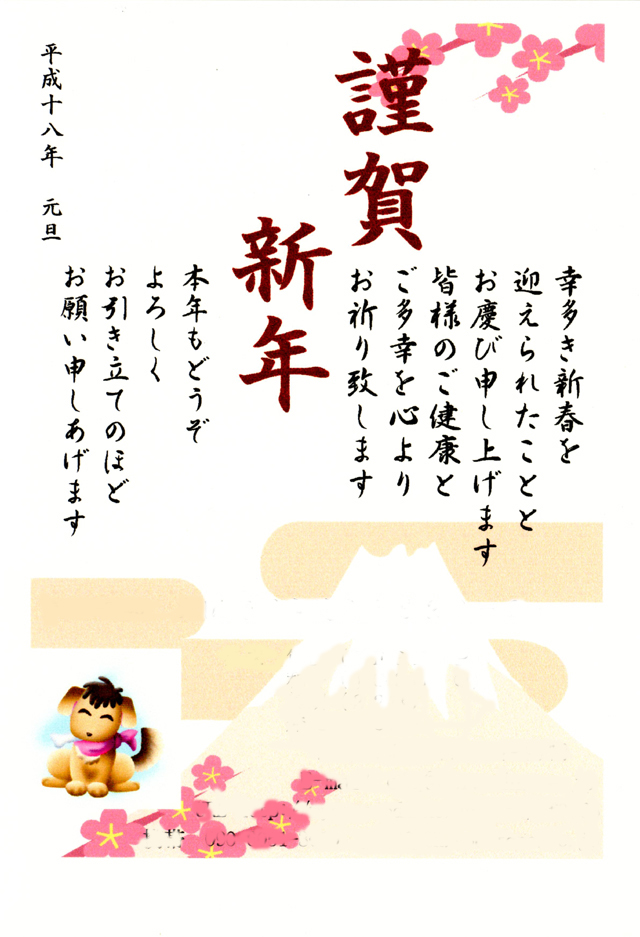 謹賀
新年
幸多き新春を
迎えられたことと
お慶び申し上げます
皆様のご健康と
ご多幸を心より
お祈り致します
本年もどうぞ
よろしく
お引き立てのほど
お願い申しあげます
平成十八年 元旦